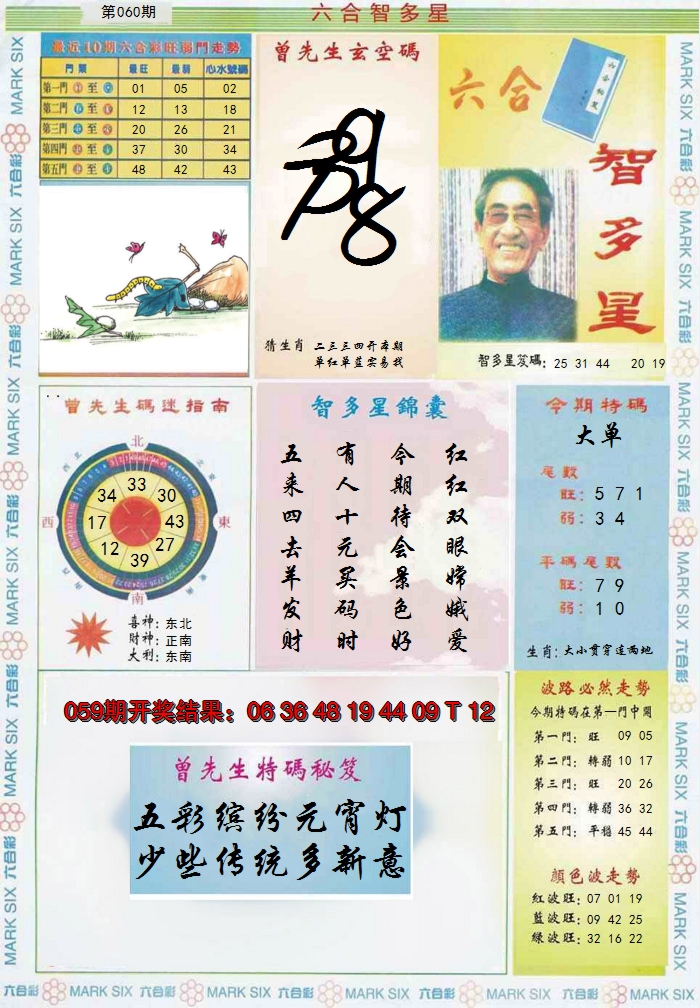 第060期
六合智多星
最近10期六合彩旺弱門走勢
門類 最旺 最弱 心水號碼
第一門 至 01 05 02
第二門 至 12 13 18
第三門 至 20 26 21
第四門 至 37 30 34
第五門 至 48 42 43
曾先生玄空碼
猜生肖 二三三四开本期
单红单蓝实易找
六合
智多星
智多星笈碼: 25 31 44 20 19
曾先生碼迷指南
北
西
東
南
34 33 30
17 43
12 39 27
喜神: 东北
財神: 正南
大利: 东南
智多星錦囊
红红双眼嫦娥爱
今期待会景色好
有人十元买码时
五来四去羊发财
今期特碼
大单
尾數
旺: 5 7 1
弱: 3 4
平碼尾數
旺: 7 9
弱: 1 0
生肖: 大小贯穿这两地
059期开奖结果: 06 36 48 19 44 09 T 12
曾先生特碼秘笈
五彩缤纷元宵灯
少些传统多新意
波路必然走勢
今期特碼在第一門中開
第一門: 旺 09 05
第二門: 轉弱 10 17
第三門: 旺 20 26
第四門: 轉弱 36 32
第五門: 平穩 45 44
顏色波走勢
紅波旺: 07 01 19
藍波旺: 09 42 25
綠波旺: 32 16 22
MARK SIX 六合彩 MARK SIX 六合彩 MARK SIX 六合彩 MARK SIX 六合彩 MARK SIX 六合彩